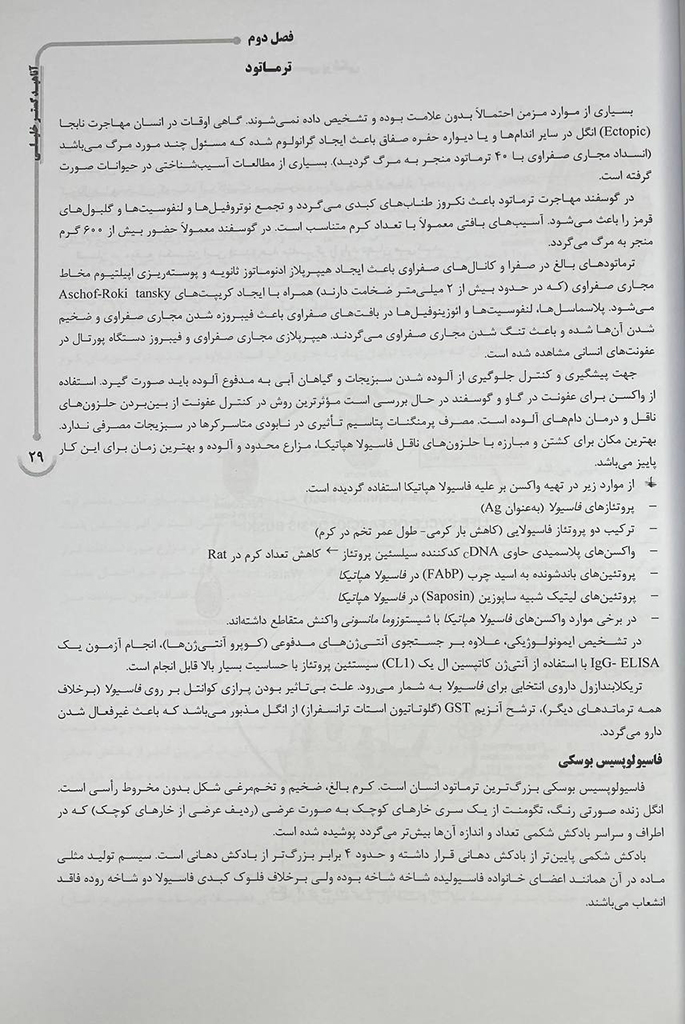 فصل دوم
ترماتود
آناهید گستر خلیلی
۲۹
بسیاری از موارد مزمن احتمالاً بدون علامت بوده و تشخیص داده نمی‌شوند. گاهی اوقات در انسان مهاجرت نابجا
(Ectopic) انگل در سایر اندام‌ها و یا دیواره حفره صفاق باعث ایجاد گرانولوم شده که مسئول چند مورد مرگ می‌باشد
(انسداد مجاری صفراوی با ۴۰ ترماتود منجر به مرگ گردید). بسیاری از مطالعات آسیب‌شناختی در حیوانات صورت
گرفته است.
در گوسفند مهاجرت ترماتود باعث نکروز طناب‌های کبدی می‌گردد و تجمع نوتروفیل‌ها و لنفوسیت‌ها و گلبول‌های
قرمز را باعث می‌شود. آسیب‌های بافتی معمولاً با تعداد کرم متناسب است. در گوسفند معمولاً حضور بیش از ۶۰۰ گرم
منجر به مرگ می‌گردد.
ترماتودهای بالغ در صفرا و کانال‌های صفراوی باعث ایجاد هیپرپلاز ادنوماتوز ثانویه و پوسته‌ریزی اپیلتیوم مخاط
مجاری صفراوی (که در حدود بیش از ۲ میلی‌متر ضخامت دارند) همراه با ایجاد کریپت‌های Aschof-Roki tansky
می‌شود. پلاسماسل‌ها، لنفوسیت‌ها و ائوزینوفیل‌ها در بافت‌های صفراوی باعث فیبروزه شدن مجاری صفراوی و ضخیم
شدن آن‌ها شده و باعث تنگ شدن مجاری صفراوی می‌گردند. هیپرپلازی مجاری صفراوی و فیبروز دستگاه پورتال در
عفونت‌های انسانی مشاهده شده است.
جهت پیشگیری و کنترل جلوگیری از آلوده شدن سبزیجات و گیاهان آبی به مدفوع آلوده باید صورت گیرد. استفاده
از واکسن برای عفونت در گاو و گوسفند در حال بررسی است مؤثرترین روش در کنترل عفونت از بین‌بردن حلزون‌های
ناقل و درمان دام‌های آلوده است. مصرف پرمنگنات پتاسیم تأثیری در نابودی متاسرکرها در سبزیجات مصرفی ندارد.
بهترین مکان برای کشتن و مبارزه با حلزون‌های ناقل فاسیولا هپاتیکا، مزارع محدود و آلوده و بهترین زمان برای این کار
پاییز می‌باشد.
از موارد زیر در تهیه واکسن بر علیه فاسیولا هپاتیکا استفاده گردیده است.
– پروتئازهای فاسیولا (به‌عنوان Ag)
– ترکیب دو پروتئاز فاسیولایی (کاهش بار کرمی- طول عمر تخم در کرم)
– واکسن‌های پلاسمیدی حاوی cDNA کدکننده سیلسئین پروتئاز ← کاهش تعداد کرم در Rat
– پروتئین‌های باندشونده به اسید چرب (FAbP) در فاسیولا هپاتیکا
– پروتئین‌های لیتیک شبیه ساپوزین (Saposin) در فاسیولا هپاتیکا
– در برخی موارد واکسن‌های فاسیولا هپاتیکا با شیستوزوما مانسونی واکنش متقاطع داشته‌اند.
در تشخیص ایمونولوژیکی، علاوه بر جستجوی آنتی‌ژن‌های مدفوعی (کوپرو آنتی‌ژن‌ها)، انجام آزمون یک
IgG- ELISA با استفاده از آنتی‌ژن کاتپسین ال یک (CL1) سیستئین پروتئاز با حساسیت بسیار بالا قابل انجام است.
تریکلابندازول داروی انتخابی برای فاسیولا به شمار می‌رود. علت بی‌تاثیر بودن پرازی کوانتل بر روی فاسیولا (برخلاف
همه ترماتدهای دیگر)، ترشح آنزیم GST (گلوتاتیون استات ترانسفراز) از انگل مذبور می‌باشد که باعث غیرفعال شدن
دارو می‌گردد.
فاسیولوپسیس بوسکی
فاسیولوپسیس بوسکی بزرگ‌ترین ترماتود انسان است. کرم بالغ، ضخیم و تخم‌مرغی شکل بدون مخروط رأسی است.
انگل زنده صورتی رنگ، تگومنت از یک سری خارهای کوچک به صورت عرضی (ردیف عرضی از خارهای کوچک) که در
اطراف و سراسر بادکش شکمی تعداد و اندازه آن‌ها بیش‌تر می‌گردد پوشیده شده است.
بادکش شکمی پایین‌تر از بادکش دهانی قرار داشته و حدود ۴ برابر بزرگ‌تر از بادکش دهانی است. سیستم تولید مثلی
ماده در آن همانند اعضای خانواده فاسیولیده شاخه شاخه بوده ولی برخلاف فلوک کبدی فاسیولا دو شاخه روده فاقد
انشعاب می‌باشند.